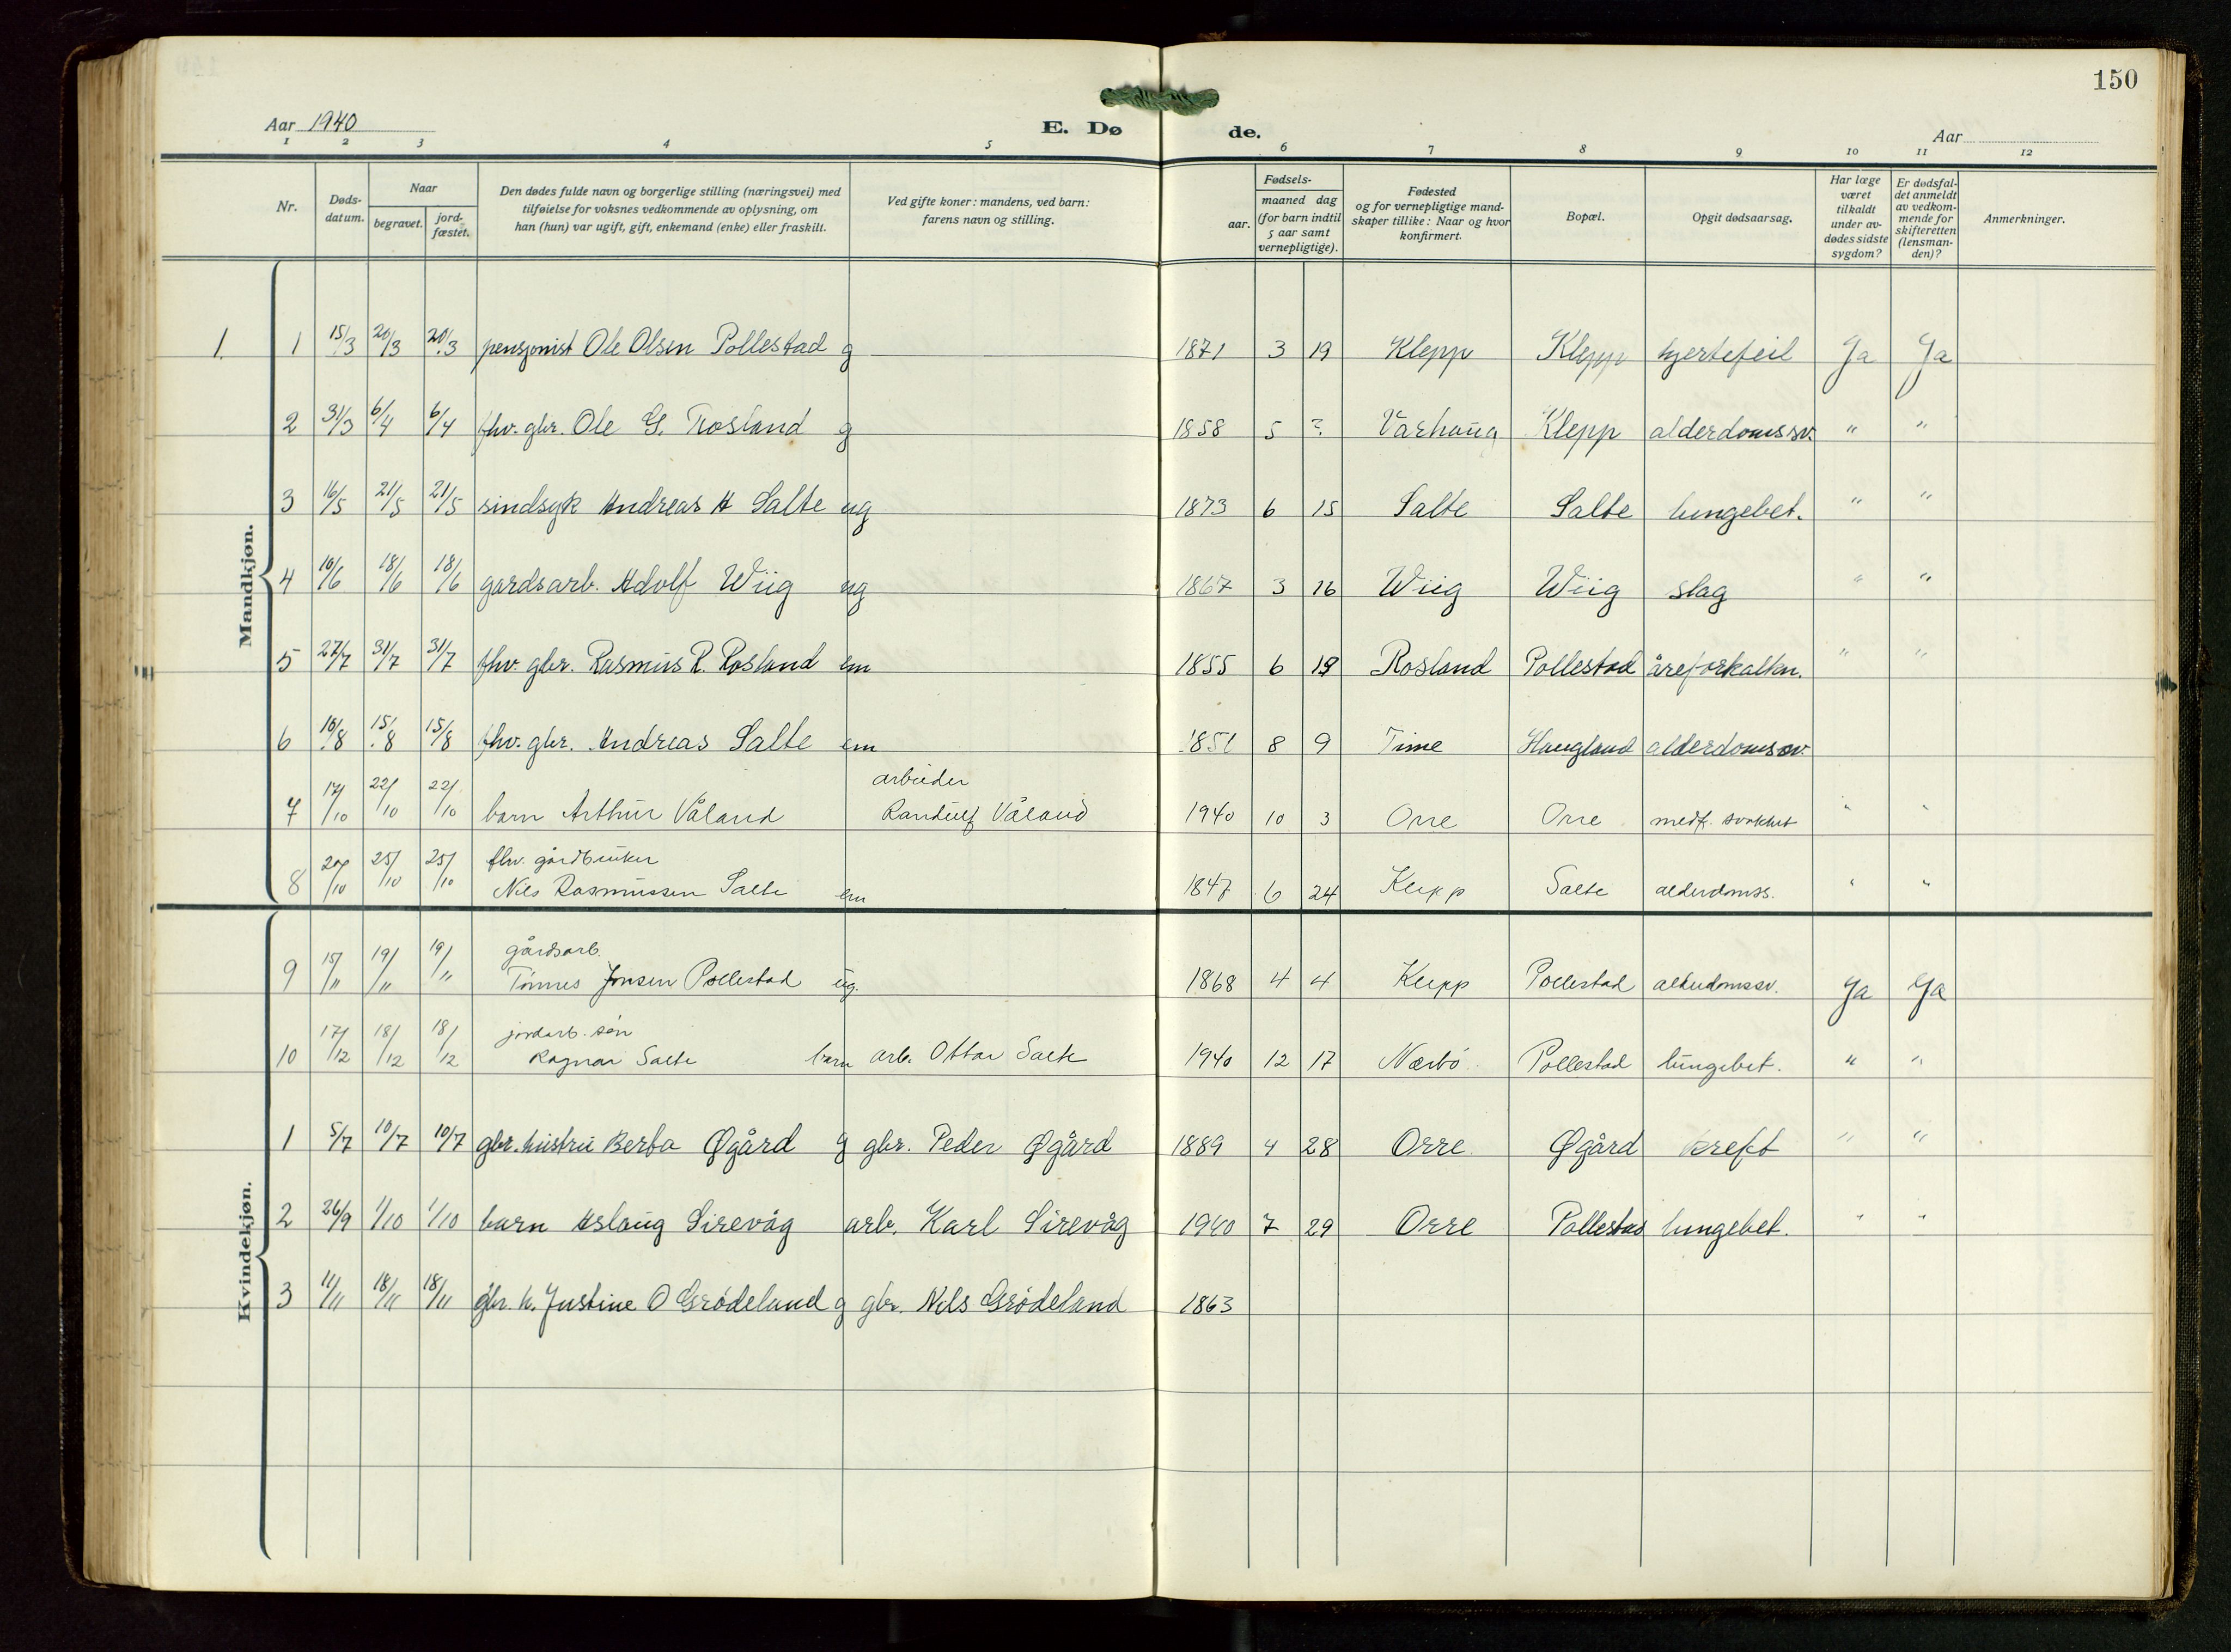 150
Aar 1940
E. Dø
de.
Aar
1 2 3 4 5 6 7 8 9 10 11 12
Nr.
Døds-
datum.
Naar
begravet.
jord-
fæstet.
Den dødes fulde navn og borgerlige stilling (næringsvei) med
tilføielse for voksnes vedkommende av oplysning, om
han (hun) var ugift, gift, enkemand (enke) eller fraskilt.
Ved gifte koner: mandens, ved barn:
farens navn og stilling.
Fødsels-
aar.
maaned dag
(for barn indtil
5 aar samt
vernepligtige).
Fødested
og for vernepligtige mand-
skaper tillike: Naar og hvor
konfirmert.
Bopæl.
Opgit dødsaarsag.
Har læge
været
tilkaldt
under av-
dødes sidste
sygdom?
Er dødsfal-
det anmeldt
av vedkom-
mende for
skifteretten
(lensman-
den)?
Anmerkninger.
Mandkjøn.
1. 1 15/3 20/3 20/3 pensjonist Ole Olsen Pollestad g 1871 3 19 Klepp Klepp hjertefeil Ja Ja
2 31/3 6/4 6/4 fhv. gbr. Ole G. Rosland g 1858 5 ? Varhaug Klepp alderdomssv. " "
3 16/5 21/5 21/5 sindsyk Andreas A Salte ug 1873 6 15 Salte Salte lungebet. " "
4 16/6 18/6 18/6 gardsarb. Adolf Wiig ug 1867 3 16 Wiig Wiig slag " "
5 27/7 31/7 31/7 fhv. gbr. Rasmus R. Rosland em 1855 6 19 Rosland Pollestad åreforkalkn. " "
6 10/8 15/8 15/8 fhv. gbr. Andreas Salte em 1851 8 9 Time Haugland alderdomssv.
7 17/10 22/10 22/10 barn Arthur Våland arbeider
Randulf Våland 1940 10 3 Orre Orre medf. svakhet " "
8 20/10 25/10 25/10 fhv. gårdbruker
Nils Rasmussen Salte em 1847 6 24 Klepp Salte alderdomss. " "
9 15/11 19/11 19/11 gårdsarb.
Tønnes Jonsen Pollestad ug. 1868 4 4 Klepp Pollestad alderdomssv. Ja Ja
10 17/12 18/12 18/12 jordarb. søn
Ragnar Salte barn arb. Ottar Salte 1940 12 17 Nærbø Pollestad lungebet. " "
Kvindekjøn.
1 5/7 10/7 10/7 gbr. hustru Berta Øgård g gbr. Peder Øgård 1889 4 28 Orre Øgård kreft " "
2 26/9 1/10 1/10 barn Aslaug Sirevåg arb. Karl Sirevåg 1940 7 29 Orre Pollestad lungebet. " "
3 11/11 18/11 18/11 gbr. h. Justine O Grødeland g gbr. Nils Grødeland 1863